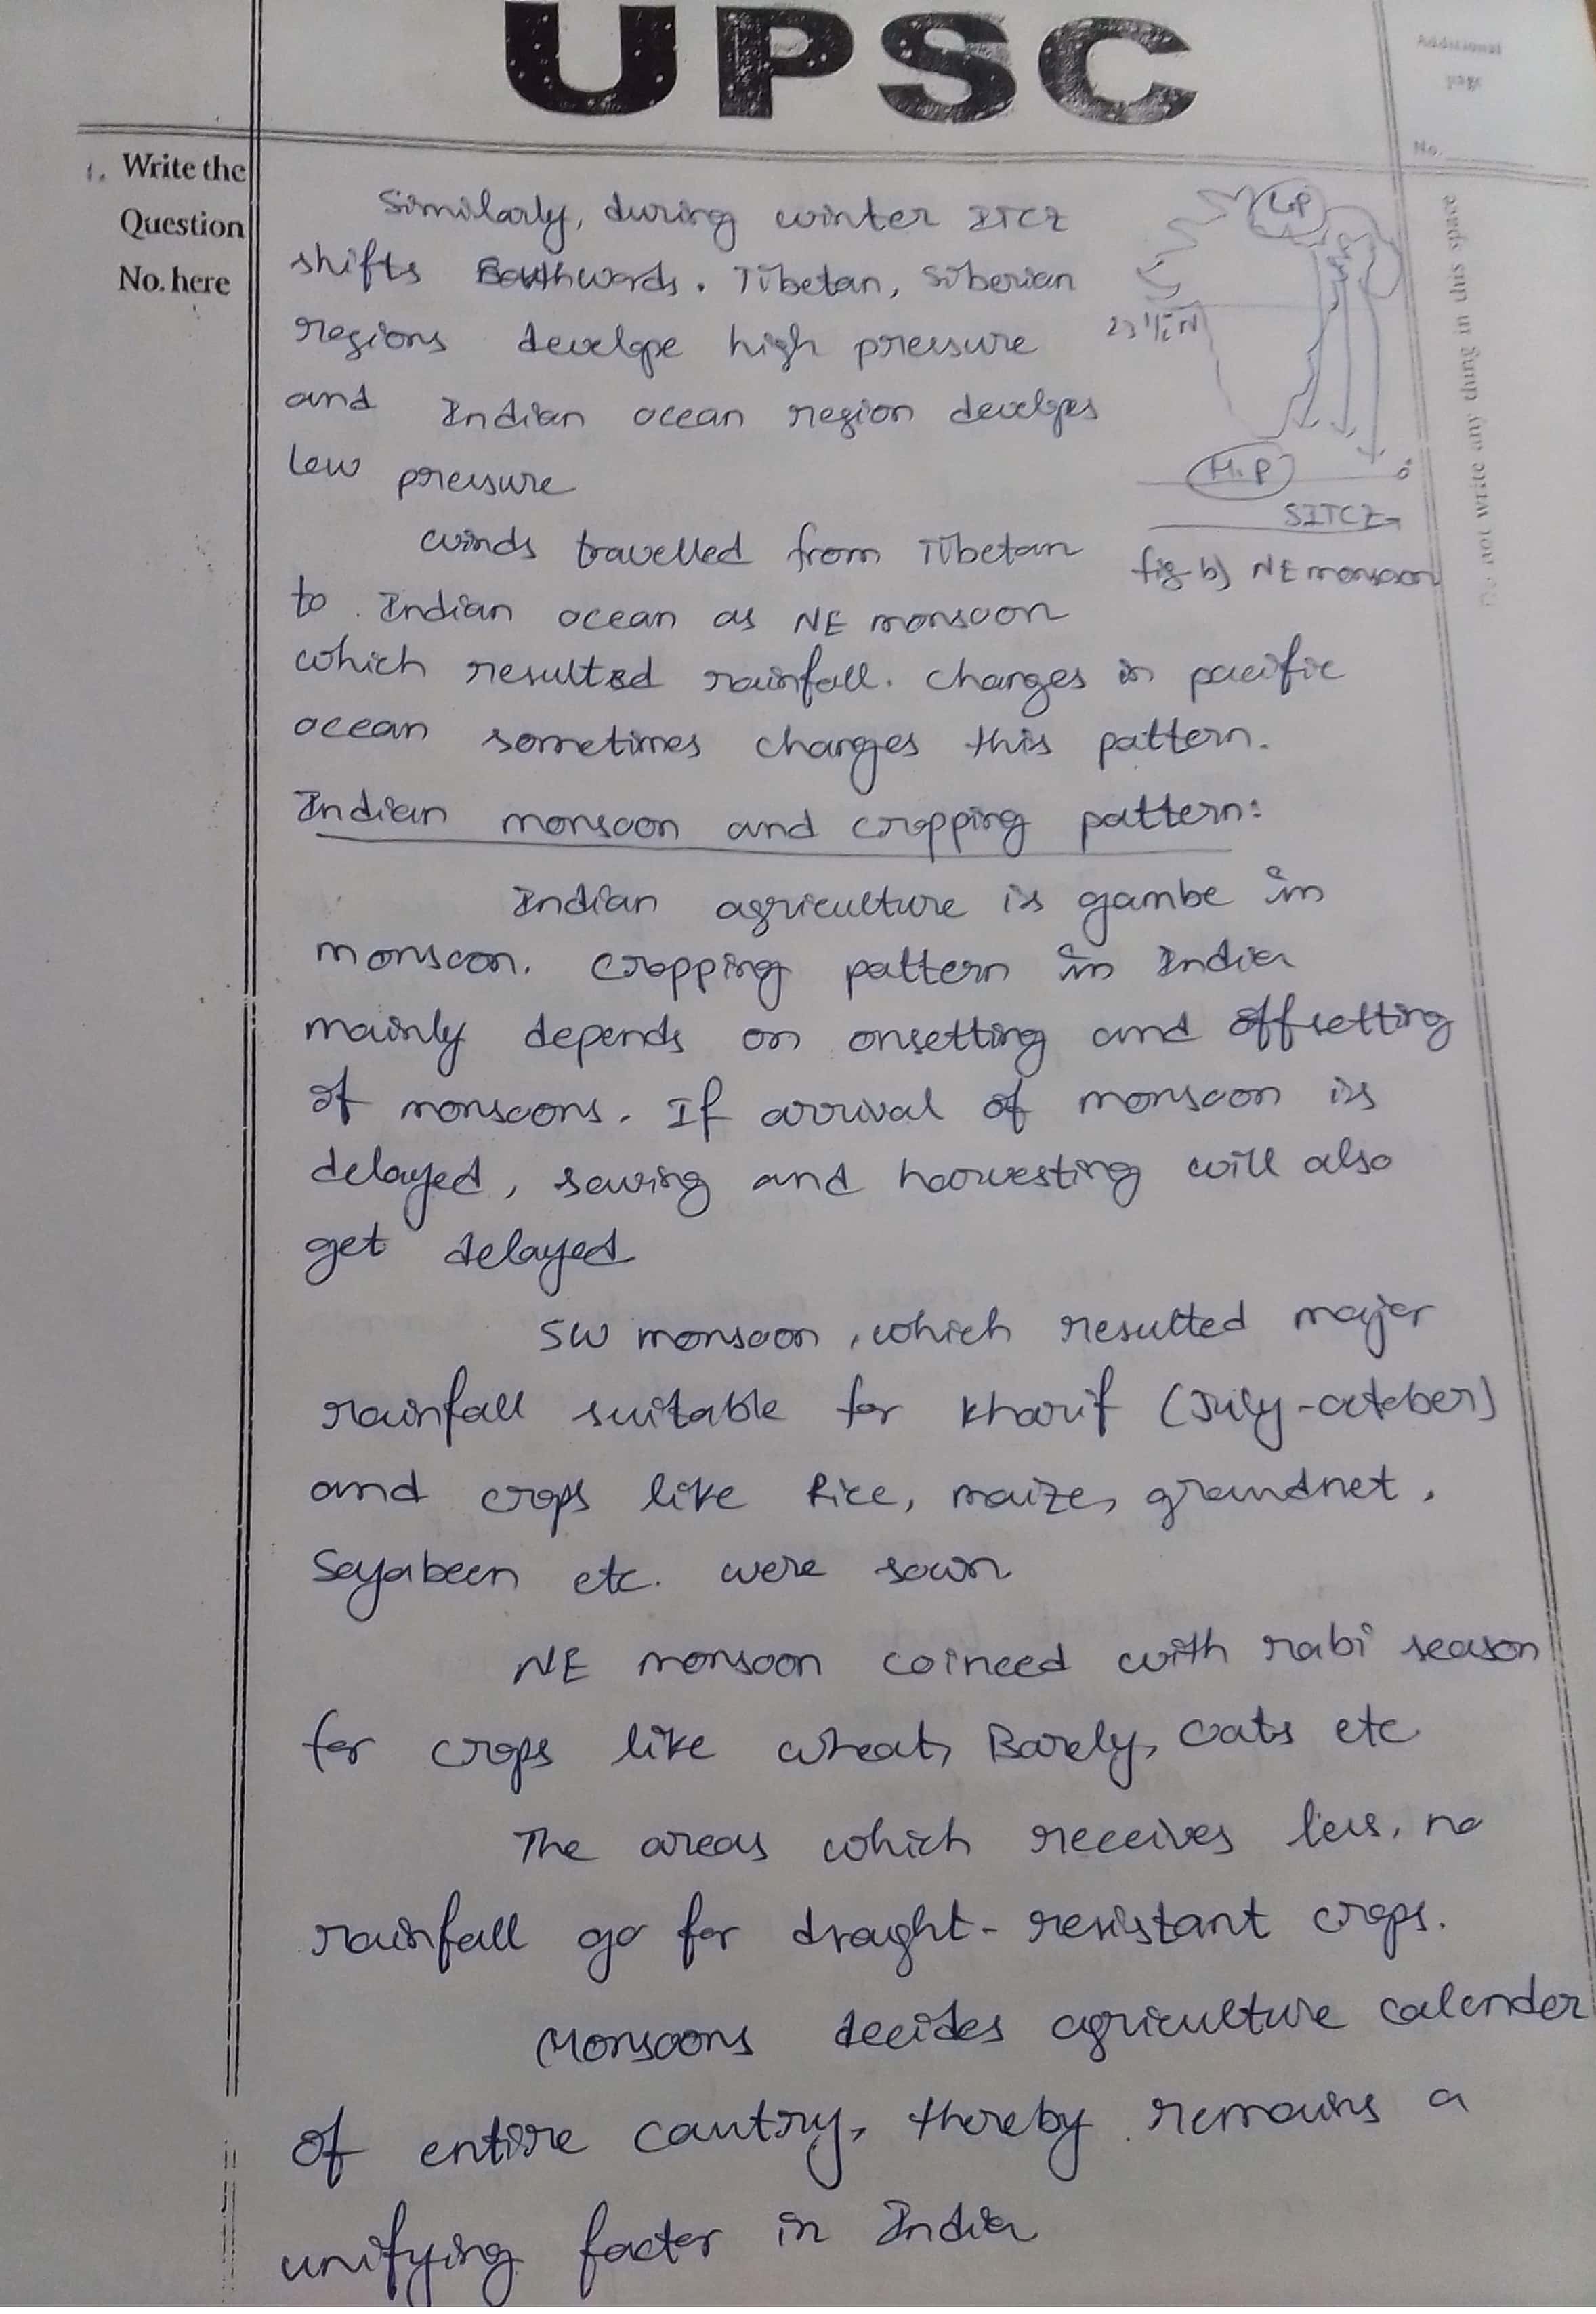 UPSC
Additional
page
No.
1. Write the
Question
No. here
Do not write any thing in this space
Similarly, during winter ITCZ
shifts Southwards. Tibetan, Siberian
regions develope high pressure
and Indian ocean region develops
low pressure
L.P
23 1/2 N
H.P
0°
SITCZ
fig-b) NE monsoon
winds travelled from Tibetan
to Indian ocean as NE monsoon
which resulted rainfall. Changes in pacific
ocean sometimes changes this pattern.
Indian monsoon and cropping pattern:
Indian agriculture is gambe in
monsoon. Cropping pattern in India
mainly depends on onsetting and offsetting
of monsoons. If arrival of monsoon is
delayed, sowing and harvesting will also
get delayed
SW monsoon, which resulted major
rainfall suitable for Kharif (July-october)
and crops like Rice, maize, groundnet,
Soyabeen etc. were sown
NE monsoon coinced with rabi season
for crops like wheat, Barely, oats etc
The areas which receives less, no
rainfall go for draght-resistant crops.
Monsoons decides agriculture calender
of entire cauntry, thereby remains a
unifying factor in India